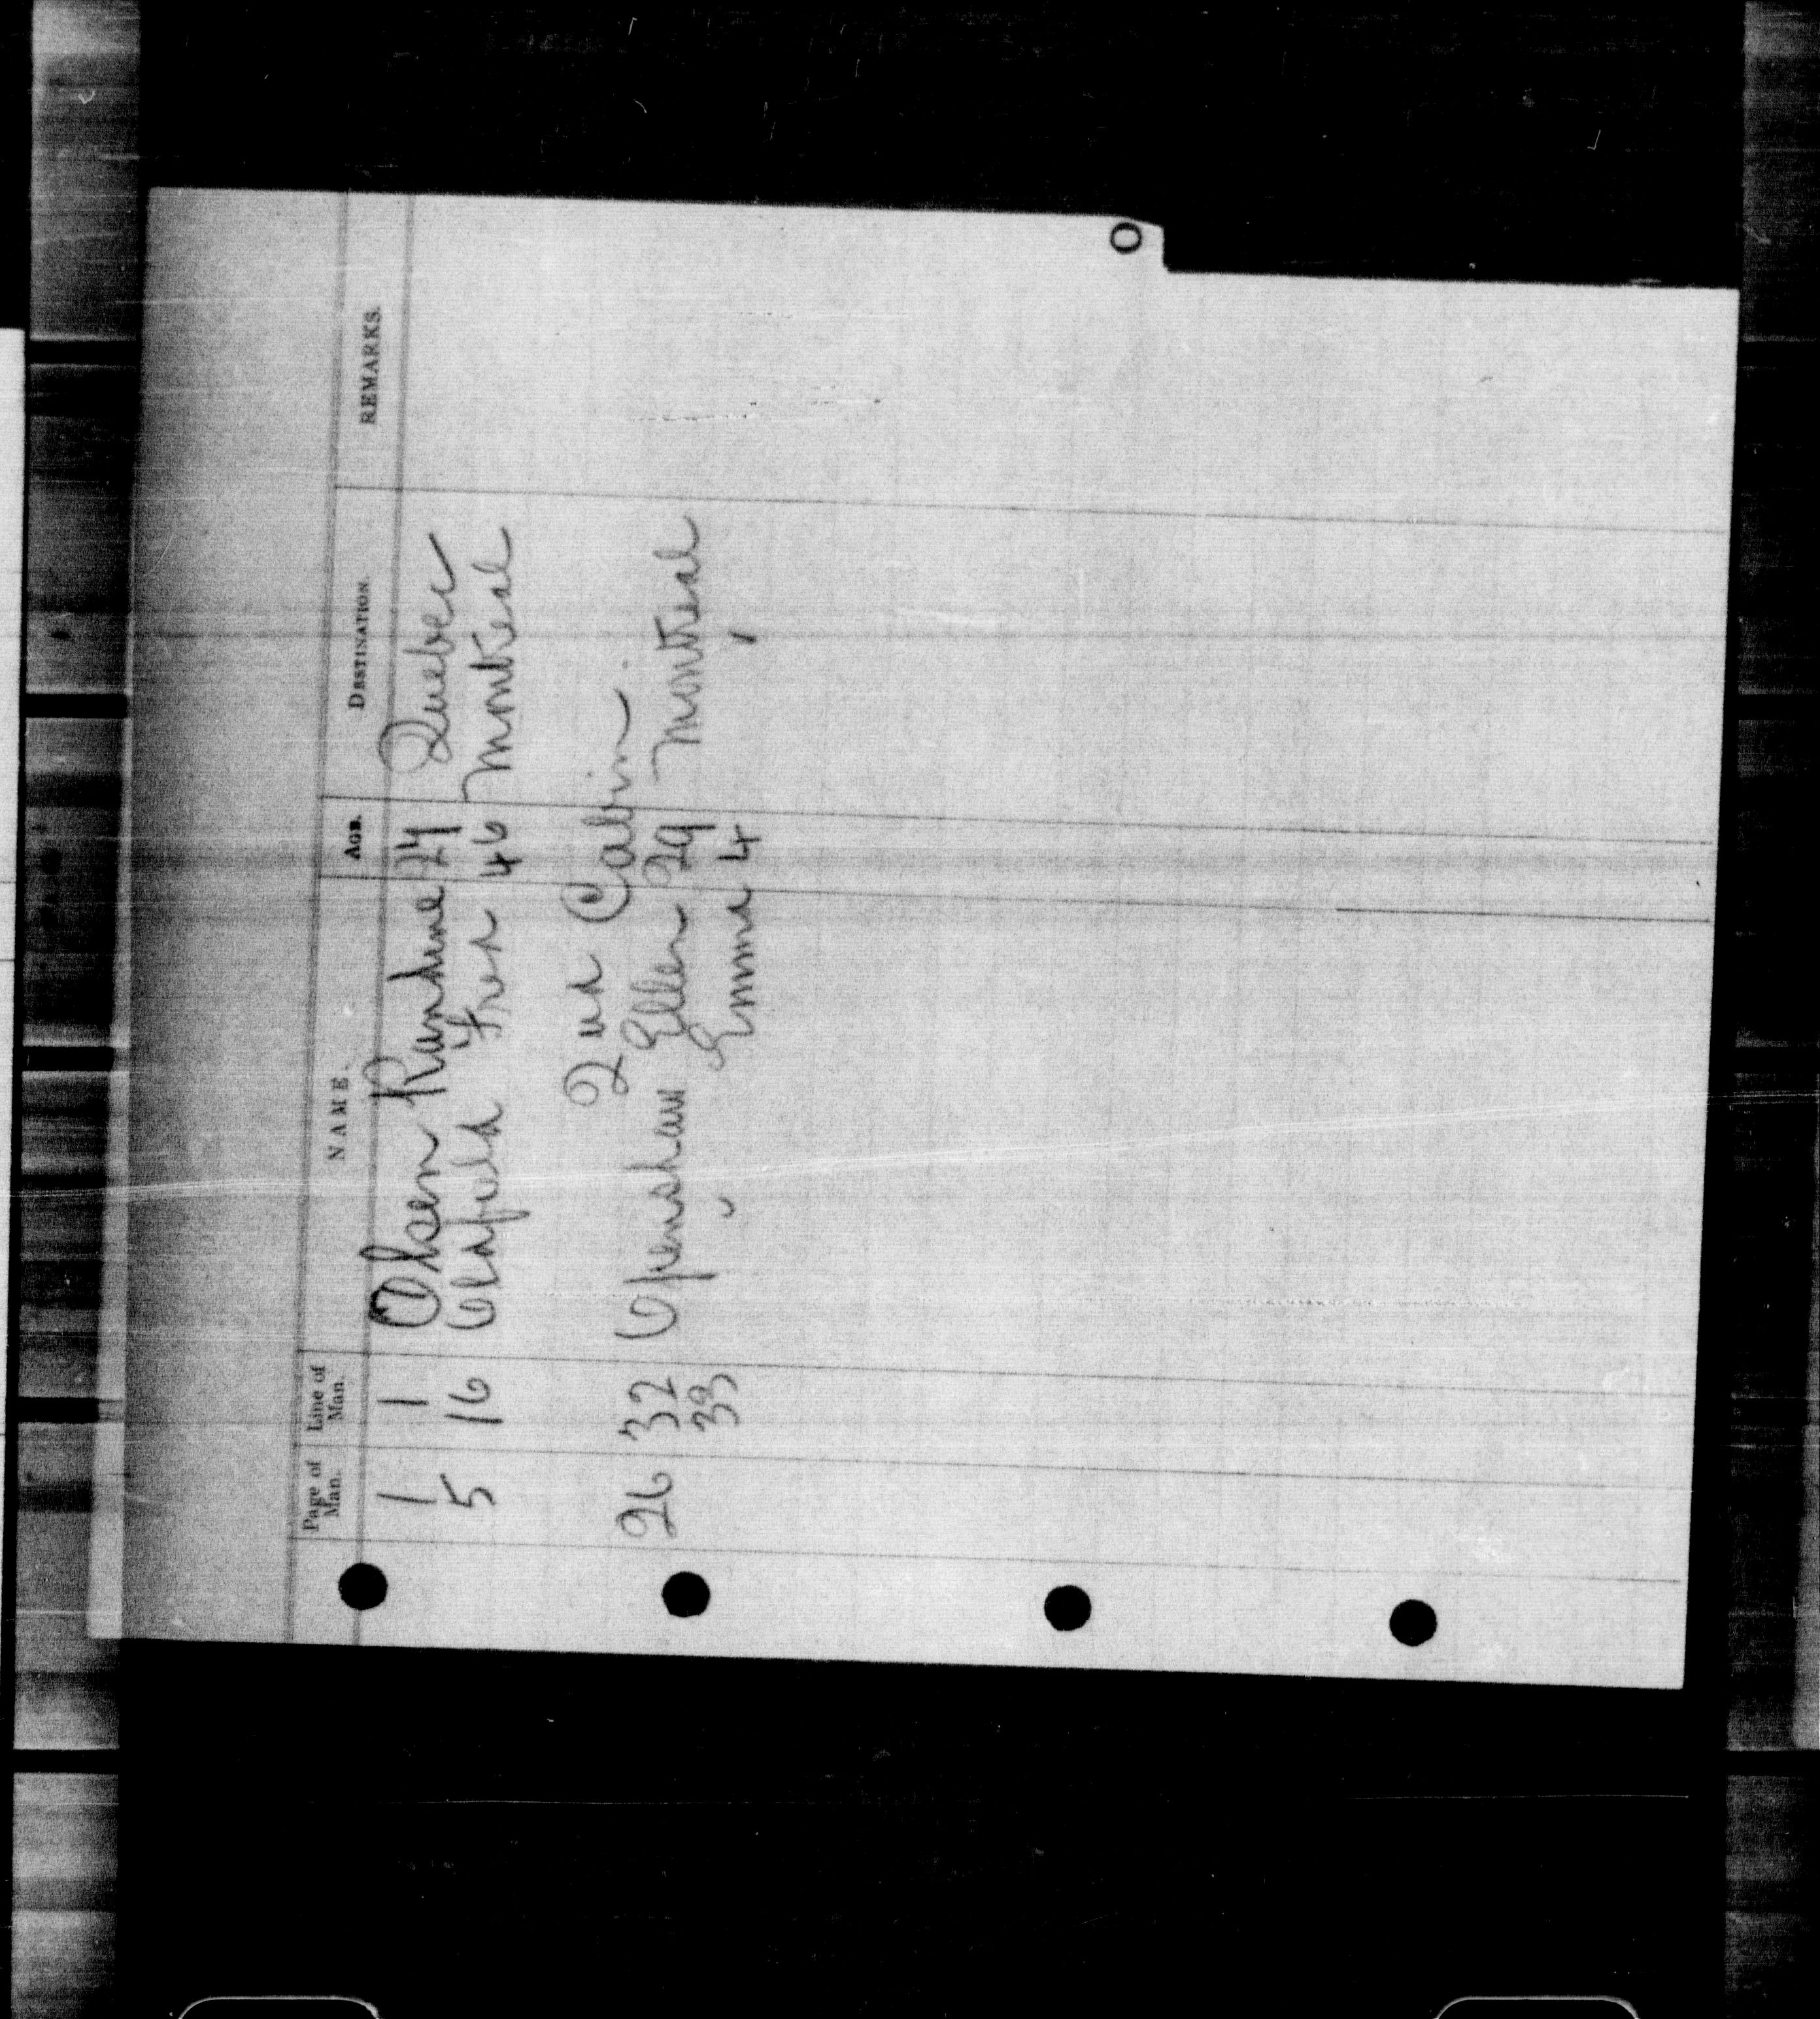 O
Page of Man. Line of Man. NAME. AGE. DESTINATION. REMARKS.
1 1 Olsen 24 Quebec
5 16 Oldfield Fred 46 Montreal
2nd Cabin
26 32 Openshaw Ellen 29 Montreal
33 " Emma 4 "